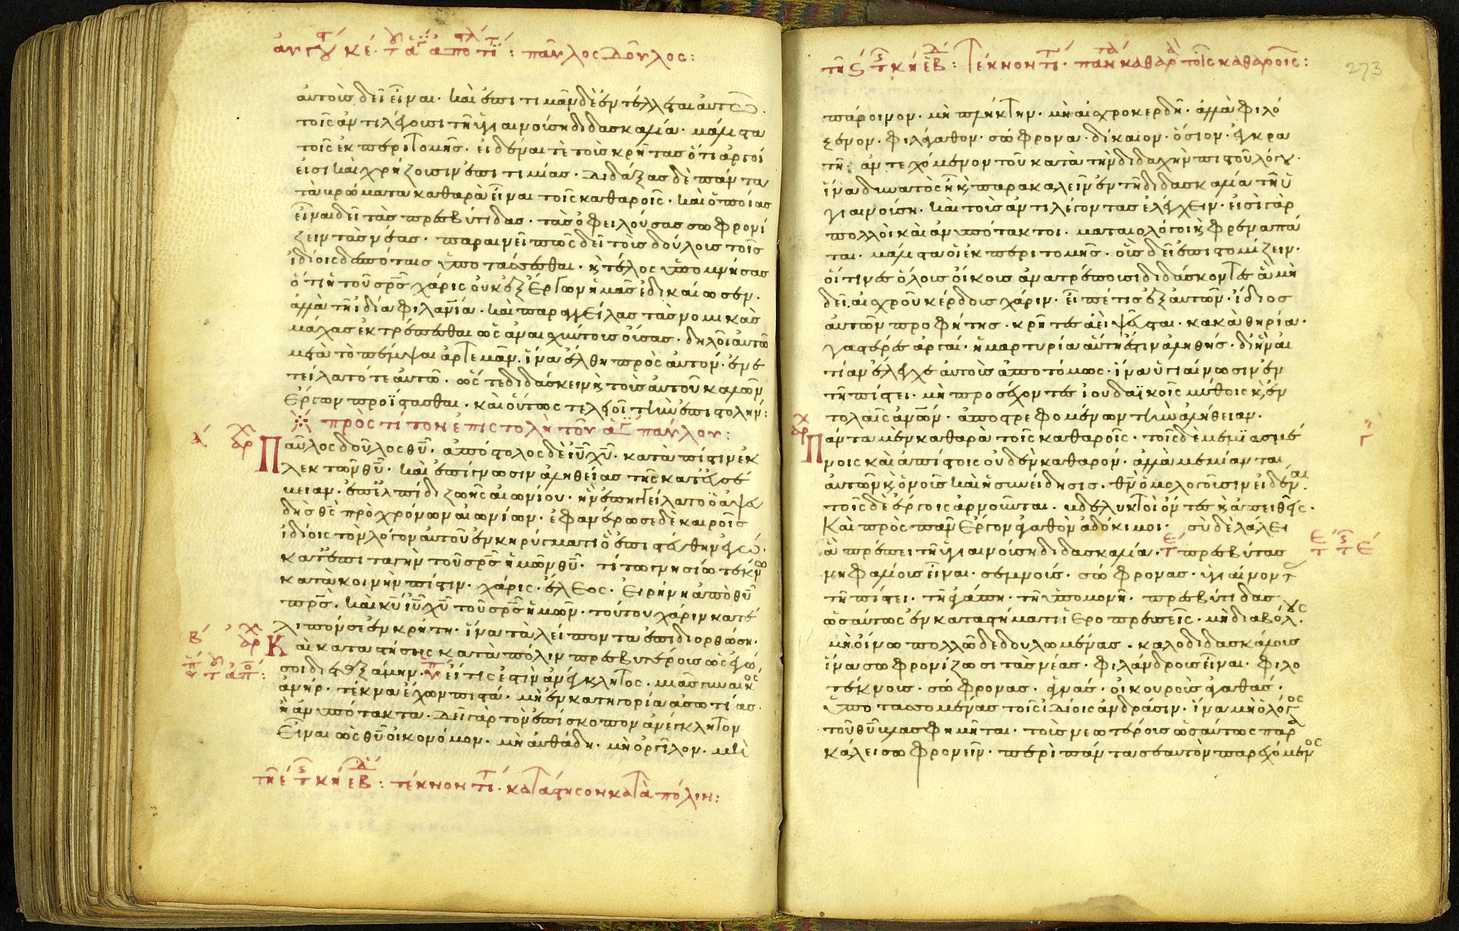 αὐτοὺς δεῖ εἶναι· καὶ ἐπιτιμᾶν δὲ ἐντέλλεται αὐτῷ
τοῖς ἀντιλέγουσι τῇ ὑγιαινούσῃ διδασκαλίᾳ· μάλιστα
τοῖς ἐκ περιτομῆς· εἰδέναι τὲ τοὺς κρῆτας ὅτι ἀργοί
εἰσι καὶ χρήζουσιν ἐπιτιμίας· διδάξας δὲ πάντα
τὰ βρώματα καθαρὰ εἶναι τοῖς καθαροῖς· καὶ ὁποίας
εἶναι δεῖ τὰς πρεσβύτιδας· τὰς ὀφειλούσας σωφρονί
ζειν τὰς νέας· παραινεῖ πῶς δεῖ τοὺς δούλους τοῖς
ἰδίοις δεσπόταις ὑποτάσσεσθαι·
ὅτι ἡ τοῦ σρς χάρις οὐκ ἐξ ἔργων ἡμᾶς ἐδικαίωσεν·
ἀλλὰ τῇ ἰδίᾳ φιλανίᾳ· καὶ παραγγείλας τὰς νομικὰς
μάχας ἐκτρέπεσθαι ὡς
μετὰ τὸ πέμψαι ἀρτεμᾶν· ἵνα ἔλθῃ πρὸς αὐτόν·
ἔργων προΐστασθαι· καὶ οὕτως τελειοῖ τὴν ἐπιστολήν:
πρὸς τίτον ἐπιστολὴ τοῦ ἁγ παύλου:
Παῦλος δοῦλος θυ· ἀπόστολος δὲ ιυ χυ· κατὰ πίστιν ἐκ
λεκτῶν θυ· καὶ ἐπίγνωσιν ἀληθείας τῆς κατ' εὐσέ
βειαν· ἐπ' ἐλπίδι ζωῆς αἰωνίου· ἣν ἐπηγγείλατο ὁ ἀψευ
δὴς θς πρὸ χρόνων αἰωνίων· ἐφανέρωσε δὲ καιροῖς
ἰδίοις τὸν λόγον αὐτοῦ ἐν κηρύγματι ὃ ἐπιστεύθην ἐγώ·
κατ' ἐπιταγὴν τοῦ σρς ἡμῶν θυ· τίτω γνησίω τέκνω
κατὰ κοινὴν πίστιν· χάρις· ἔλεος· εἰρήνη ἀπὸ θυ
πρς· καὶ κυ ιυ χυ τοῦ σρς ἡμῶν· τούτου χάριν κατέ
λιπόν σε ἐν κρήτη· ἵνα τὰ λείποντα ἐπιδιορθώση·
Καὶ καταστήσης κατὰ πόλιν πρεσβυτέρους ὡς ἐγώ
σοι διεταξάμην· εἴ τις ἐστὶν ἀνέγκλητος· μιᾶς γυναικὸς
ἀνήρ· τέκνα ἔχων πιστά· μὴ ἐν κατηγορία ἀσωτίας·
ἢ ἀνυπότακτα· δεῖ γὰρ τὸν ἐπίσκοπον ἀνέγκλητον
εἶναι ὡς θυ οἰκονόμον· μὴ αὐθάδη· μὴ ὀργίλον· μὴ
τέκνον τί· κατάστησον κατὰ πόλιν:
τέκνον τί· πάντα καθαρ τοῖς καθαροῖς:
273
πάροινον· μὴ πλήκτην· μὴ αἰσχροκερδῆ· ἀλλὰ φιλό
ξενον· φιλάγαθον· σώφρονα· δίκαιον· ὅσιον· ἐγκρα
τῆ· ἀντεχόμενον τοῦ κατὰ τὴν διδαχὴν πιστοῦ λόγου·
ἵνα δυνατὸς ᾖ καὶ παρακαλεῖν ἐν τῇ διδασκαλία τῇ ὑ
γιαινούση· καὶ τοὺς ἀντιλέγοντας ἐλέγχειν· εἰσὶ γὰρ
πολλοὶ καὶ ἀνυπότακτοι· ματαιολόγοι καὶ φρεναπά
ται· μάλιστα οἱ ἐκ περιτομῆς· οὓς δεῖ ἐπιστομίζειν·
οἵτινες ὅλους οἴκους ἀνατρέπουσι διδάσκοντες ἃ μὴ
δεῖ αἰσχροῦ κέρδους χάριν· εἶπέ τις ἐξ αὐτῶν· ἴδιος
αὐτῶν προφήτης· κρῆτες ἀεὶ ψεῦσται· κακὰ θηρία·
γαστέρες ἀργαί· ἡ μαρτυρία αὕτη ἐστὶν ἀληθής· δι' ἣν αἰ
τίαν ἔλεγχε αὐτοὺς ἀποτόμως· ἵνα ὑγιαίνωσιν ἐν
τῇ πίστει· μὴ προσέχοντες ἰουδαϊκοῖς μύθοις καὶ ἐν
τολαῖς ἀνων· ἀποστρεφομένων τὴν ἀλήθειαν·
Πάντα μὲν καθαρὰ τοῖς καθαροῖς· τοῖς δὲ μεμϊασμέ
νοις καὶ ἀπίστοις οὐδὲν καθαρόν· ἀλλὰ μεμίανται
αὐτῶν καὶ ὁ νοῦς καὶ ἡ συνείδησις· θν ὁμολογοῦσιν εἰδέναι·
τοῖς δὲ ἔργοις ἀρνοῦνται· βδελυκτοὶ ὄντες καὶ ἀπειθεῖς·
Καὶ πρὸς πᾶν ἔργον ἀγαθὸν ἀδόκιμοι· σὺ δὲ λάλει
ἃ πρέπει τῇ ὑγιαινούση διδασκαλία· πρεσβύτας
νηφαλίους εἶναι· σεμνούς· σώφρονας· ὑγιαίνοντας
τῇ πίστει· τῇ ἀγάπη· τῇ ὑπομονῇ· πρεσβύτιδας
ὡσαύτως ἐν καταστήματι ἱεροπρεπεῖς· μὴ διαβόλους·
μὴ οἴνω πολλῶ δεδουλωμένας· καλοδιδασκάλους
ἵνα σωφρονίζωσι τὰς νέας· φιλάνδρους εἶναι· φιλο
τέκνους· σώφρονας· ἁγνάς· οἰκουροὺς ἀγαθάς·
ὑποτασσομένας τοῖς ἰδίοις ἀνδράσιν· ἵνα μὴ ὁ λόγος
τοῦ θυ βλασφημῆται· τοὺς νεωτέρους ὡσαύτως παρ
κάλει σωφρονεῖν· περὶ πάντα σεαυτὸν παρεχόμενος